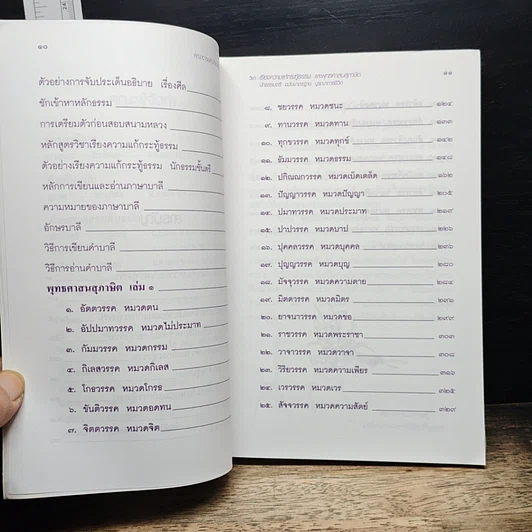 ๑๐
ตัวอย่างการจับประเด็นอธิบาย เรื่องศีล
ชักเข้าหาหลักธรรม
การเตรียมตัวก่อนสอบสนามหลวง
หลักสูตรวิชาเรียงความแก้กระทู้ธรรม
ตัวอย่างเรียงความแก้กระทู้ธรรม นักธรรมชั้นตรี
หลักการเขียนและอ่านภาษาบาลี
ความหมายของภาษาบาลี
อักษรบาลี
วิธีการเขียนคำบาลี
วิธีการอ่านคำบาลี
พุทธศาสนสุภาษิต เล่ม ๑
๑. อัตตวรรค หมวดตน
๒. อัปปมาทวรรค หมวดไม่ประมาท
๓. กัมมวรรค หมวดกรรม
๔. กิเลสวรรค หมวดกิเลส
๕. โกธวรรค หมวดโกรธ
๖. ขันติวรรค หมวดอดทน
๗. จิตตวรรค หมวดจิต
วิชา เรียงความแก้กระทู้ธรรม และพุทธศาสนสุภาษิต ๑๑
๘. ชยวรรค หมวดชนะ ๑๒๔
๙. ทานวรรค หมวดทาน ๑๓๓
๑๐. ทุกขวรรค หมวดทุกข์ ๑๔๑
๑๑. ธัมมวรรค หมวดธรรม ๑๔๘
๑๒. ปกิณณกวรรค หมวดเบ็ดเตล็ด ๑๖๒
๑๓. ปัญญาวรรค หมวดปัญญา ๒๐๕
๑๔. ปมาทวรรค หมวดประมาท ๒๑๙
๑๕. ปาปวรรค หมวดบาป ๒๒๖
๑๖. ปุคคลวรรค หมวดบุคคล ๒๓๖
๑๗. ปุญญวรรค หมวดบุญ ๒๘๐
๑๘. มัจจุวรรค หมวดความตาย ๒๘๔
๑๙. มิตตวรรค หมวดมิตร ๒๙๑
๒๐. ยาจนาวรรค หมวดขอ ๒๙๙
๒๑. ราชวรรค หมวดพระราชา ๓๐๓
๒๒. วาจาวรรค หมวดวาจา ๓๐๘
๒๓. วิริยวรรค หมวดความเพียร ๓๑๖
๒๔. เวรวรรค หมวดเวร ๓๒๕
๒๕. สัจจวรรค หมวดความสัตย์ ๓๒๙